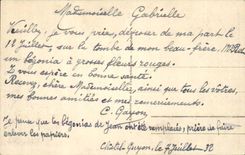 Mademoiselle Gabrielle
Veuillez, je vous prie, déposer de ma part le
18 Juillet, sur la tombe de mon beau-frère,
un bégonia à grosses fleurs rouges.
Je vous espère en bonne santé.
Recevez, chère Mademoiselle, ainsi que tous les vôtres,
mes bonnes amitiés et mes remerciements.
C. Gayon
Je pense que les bégonias de Jean ont été remplacés, prière de faire
enlever les papiers.
Châtel-Guyon, le 7 Juillet 32